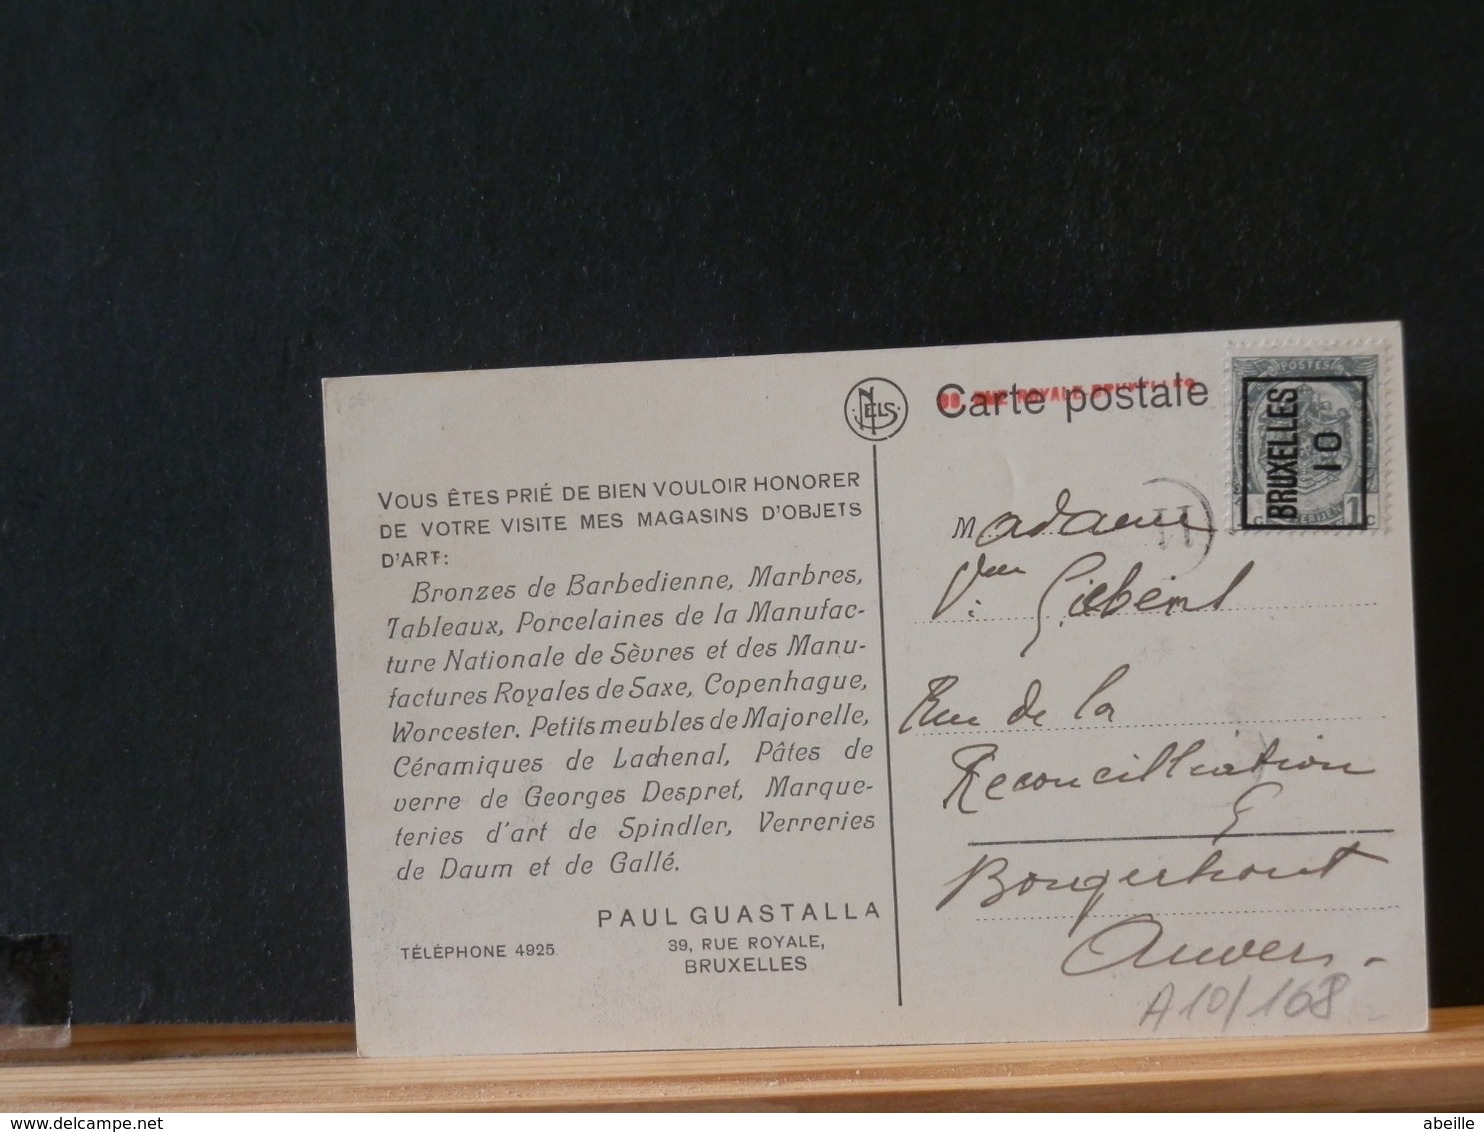 NELS
Carte postale
RUE ROYALE BRUXELLES
POSTES
BRUXELLES
10
VOUS ÊTES PRIÉ DE BIEN VOULOIR HONORER
DE VOTRE VISITE MES MAGASINS D'OBJETS
D'ART:
Bronzes de Barbedienne, Marbres,
Tableaux, Porcelaines de la Manufac-
ture Nationale de Sèvres et des Manu-
factures Royales de Saxe, Copenhague,
Worcester. Petits meubles de Majorelle,
Céramiques de Lachenal, Pâtes de
verre de Georges Despret, Marque-
teries d'art de Spindler, Verreries
de Daum et de Gallé.
PAUL GUASTALLA
TÉLÉPHONE 4925
39, RUE ROYALE,
BRUXELLES
Madame
Rue de la
Reconcilliation
Borgerhout
Anvers
A10/168
delcampe.net
abeille